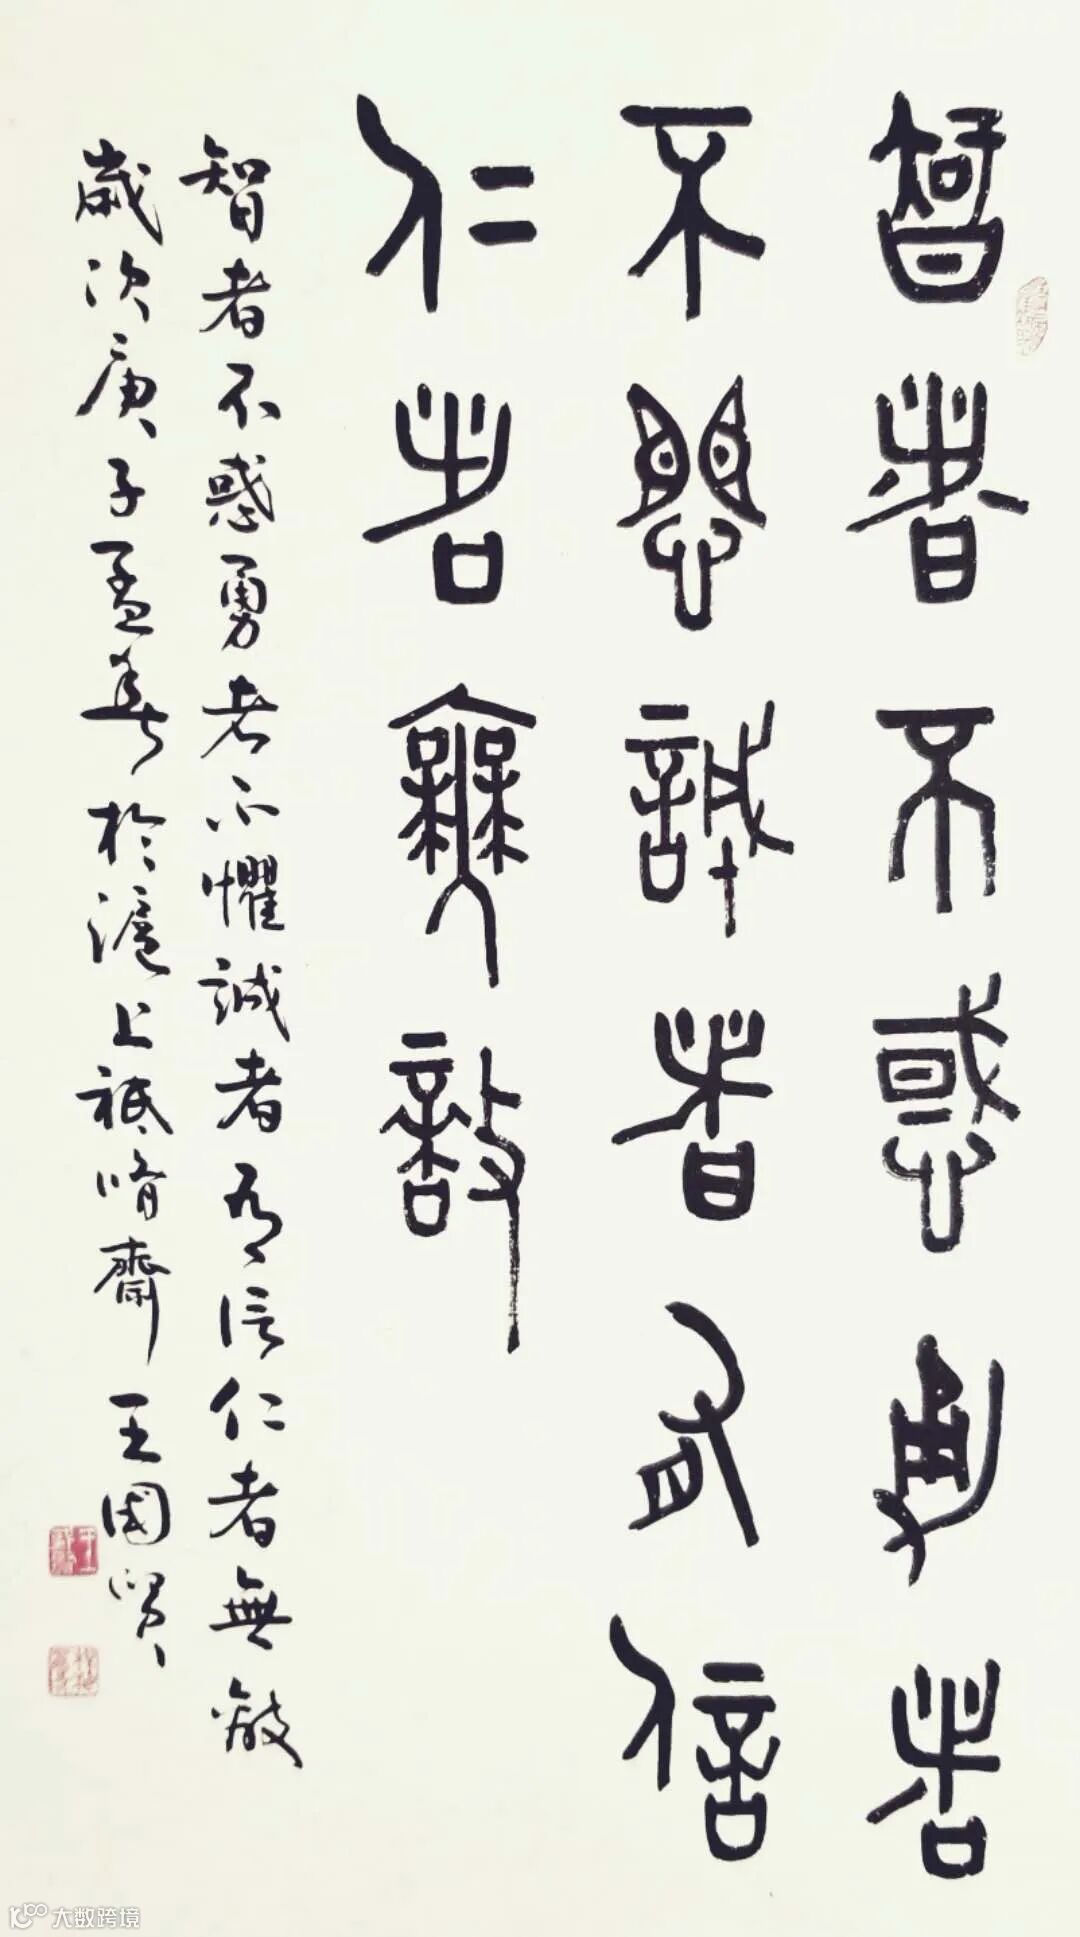 智者不惑勇者
不惧誠者有信
仁者無敵
智者不惑勇者不懼誠者有信仁者無敵
歲次庚子孟春於滬上祗脩齋王國賢
大数跨境